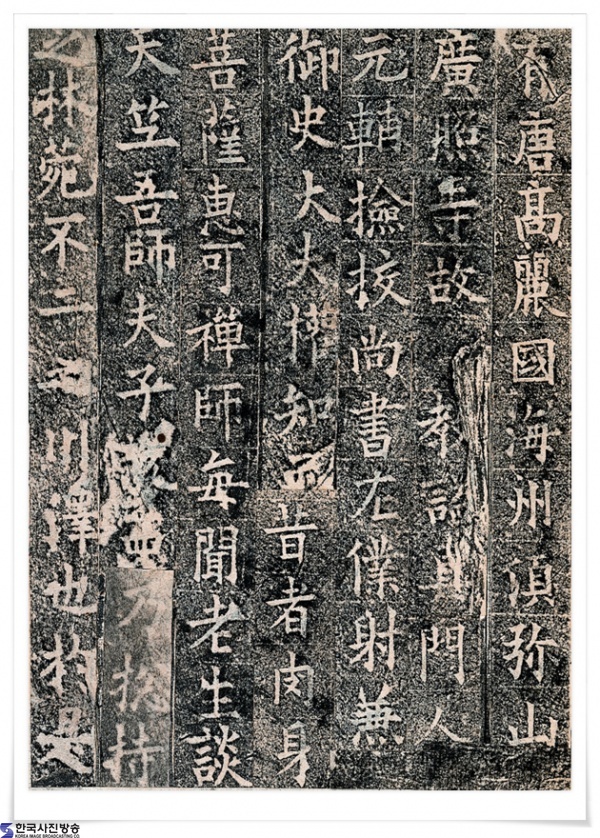 有唐高麗國海州湏弥山
廣照寺故 教諡真門人
元輔撿挍尚書左僕射兼
御史大大權知昔者肉身
菩薩惠可禪師每聞老生談
天竺吾師夫子乃揔持
之林菀不二之川澤也於是
한국사진방송
KOREA IMAGE BROADCASTING CO.